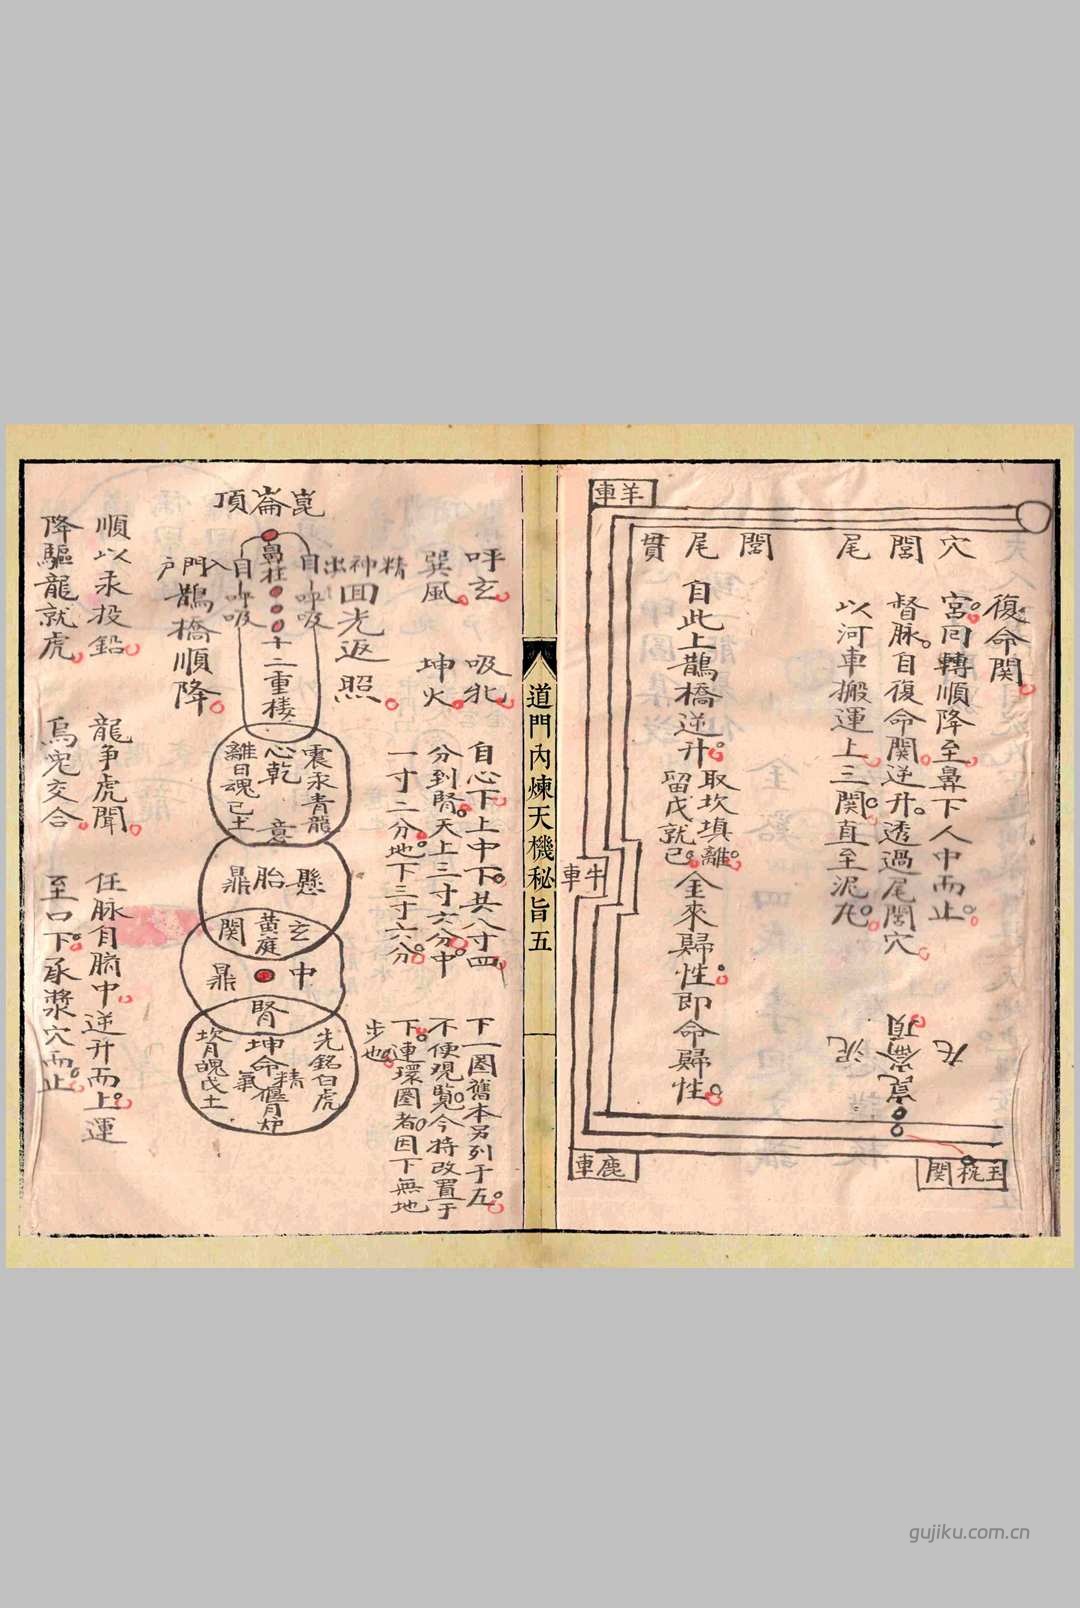 羊車
穴閭尾
閭尾貫
復命關
宮同轉順降至鼻下人中而止
督脉自復命関逆升透過尾閭穴
以河車搬運上三関直至泥丸
自此上鵲橋逆升
取坎填離
留戊就己
金來歸性即命歸性
牛車
丸
崑崙頂
泥
鹿車
玉枕関
道門內煉天機秘旨五
呼玄 吸牝
巽風 坤火
自心下上中下共八寸四
分到腎天上三寸六分中
一寸二分地下三寸六分
下一圈舊本另列于左
不便現覽今特改置于
下連環圈者因下無地
步也
崑崙頂
精神出自呼吸
回光返照
鼻柱
自呼吸
入門戶
鵲橋順降
十二重樓
震汞青龍
心乾 意
離日魂己土
懸胎鼎
玄関
黃庭
中鼎
腎
先鉛白虎
坤命
精
氣
偃月炉
坎月魄戊土
順以汞投鉛 龍争虎鬪 任脉自臍中逆升而上運
降驅龍就虎 烏兔交合 至口下承漿穴而止
gujiku.com.cn